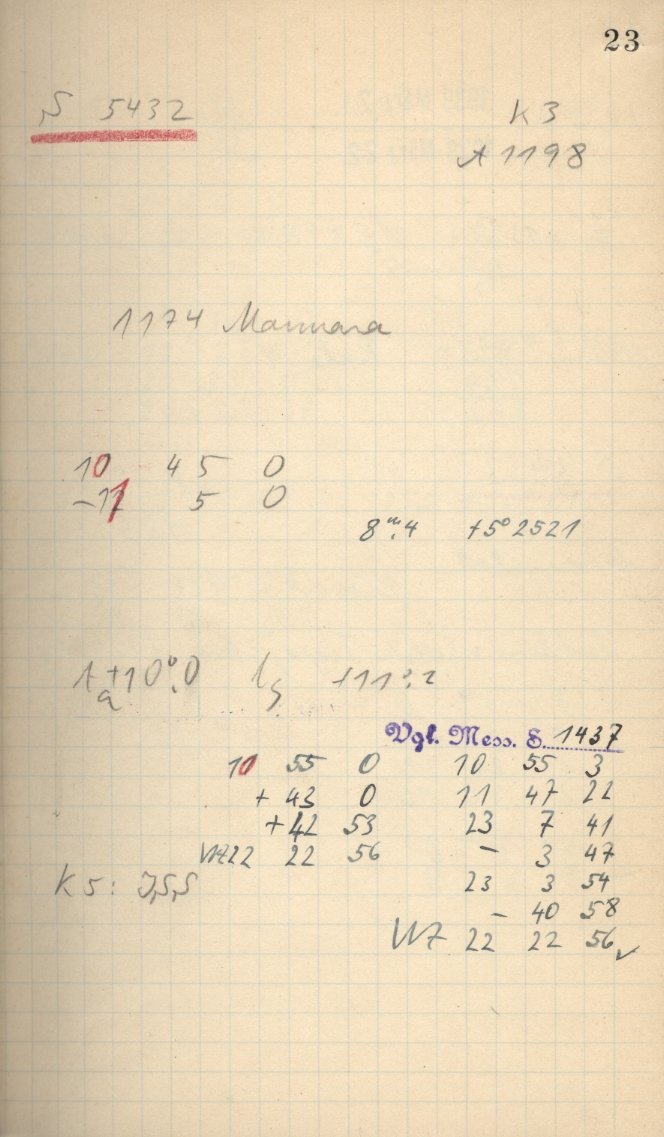 23
S 5432
K 3
A 1198
1174 Marmara
10 45 0
-11 5 0
8ᵐ.4 +5° 2521
ta +10°.0 ts +11°.2
Vgl. Mess. S. 1437
10 55 0
+ 43 0
+ 42 53
WZ 22 22 56
10 55 3
11 47 22
23 7 41
- 3 47
23 3 54
- 40 58
WZ 22 22 56 ✓
K 5: